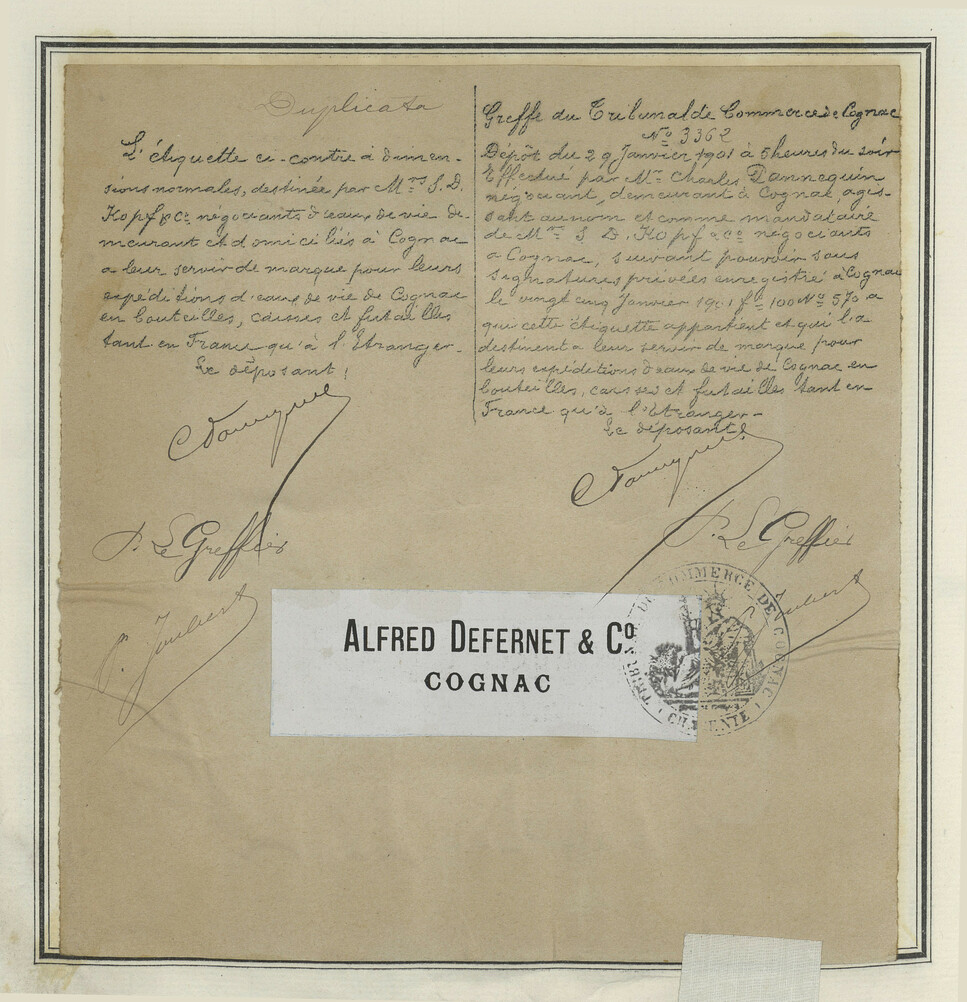 Duplicata
L'étiquette ci-contre à dimen-
sions normales, destinée par M.rs S. D.
Kopf & Co négociants d'eaux de vie de-
meurant et domiciliés à Cognac
a leur servir de marque pour leurs
expéditions d'eaux de vie de Cognac
en bouteilles, caisses et futailles
tant en France qu'à l'Etranger-
Le déposant,
P. Le Greffier
P. Joubert
Greffe du Tribunal de Commerce de Cognac
No 3362
Dépôt du 29 Janvier 1901 à 5 heures du soir
Effectué par Mr Charles Dannequin
négociant, demeurant à Cognac, agis-
sant au nom et comme mandataire
de Mrs S. D. Kopf & Co négociants
à Cognac, suivant pouvoir sous
signatures privées enregistré à Cognac
le vingt cinq Janvier 1901 fo 100 No 570
que cette étiquette appartient et qu'il la
destinent a leur servir de marque pour
leurs expéditions d'eaux de vie de Cognac en
bouteilles, caisses et futailles tant en
France qu'à l'Etranger-
Le déposant
P. Le Greffier
Joubert
ALFRED DEFERNET & Co
COGNAC
TRIBUNAL DE COMMERCE DE COGNAC
CHARENTE